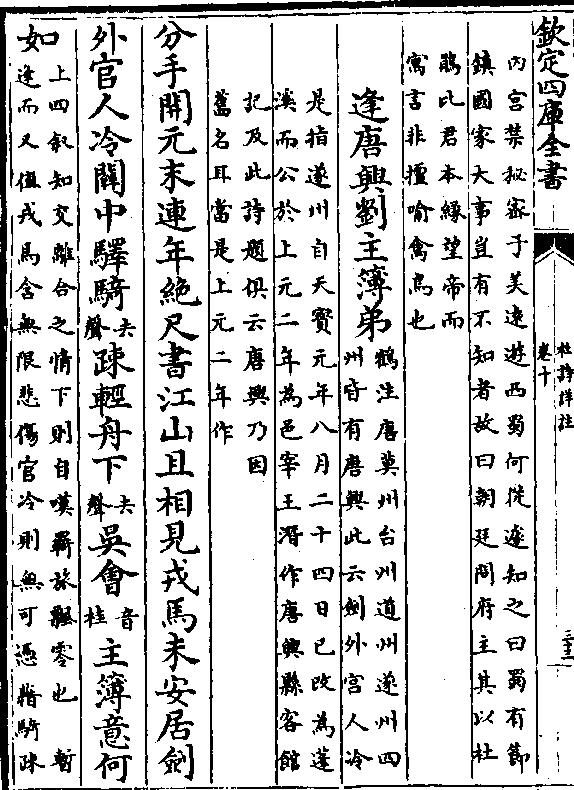 欽定四庫全書
杜詩詳註
卷十
內宮禁秘密子美遠遊西蜀何從遽知之曰蜀有節
鎮國家大事豈有不知者故曰朝廷問府主其以杜
鵑比君本緣望帝而
寓言非擅喻禽鳥也
逢唐興劉主簿弟
鶴注唐莫州台州道州遂州四
州皆有唐興此云劍外官人冷
是指遂州自天寶元年八月二十四日已改為蓬
溪而公於上元二年為邑宰王潛作唐興縣客館
記及此詩題俱云唐興乃因
舊名耳當是上元二年作
分手開元末連年絕尺書江山且相見戎馬未安居劍
外官人冷關中驛騎去聲疎輕舟下去聲吳會音桂主簿意何
如
上四叙知交離合之情下則自嘆羈旅飄零也 暫
逢而又值戎馬含無限悲傷官冷則無可憑藉騎疎